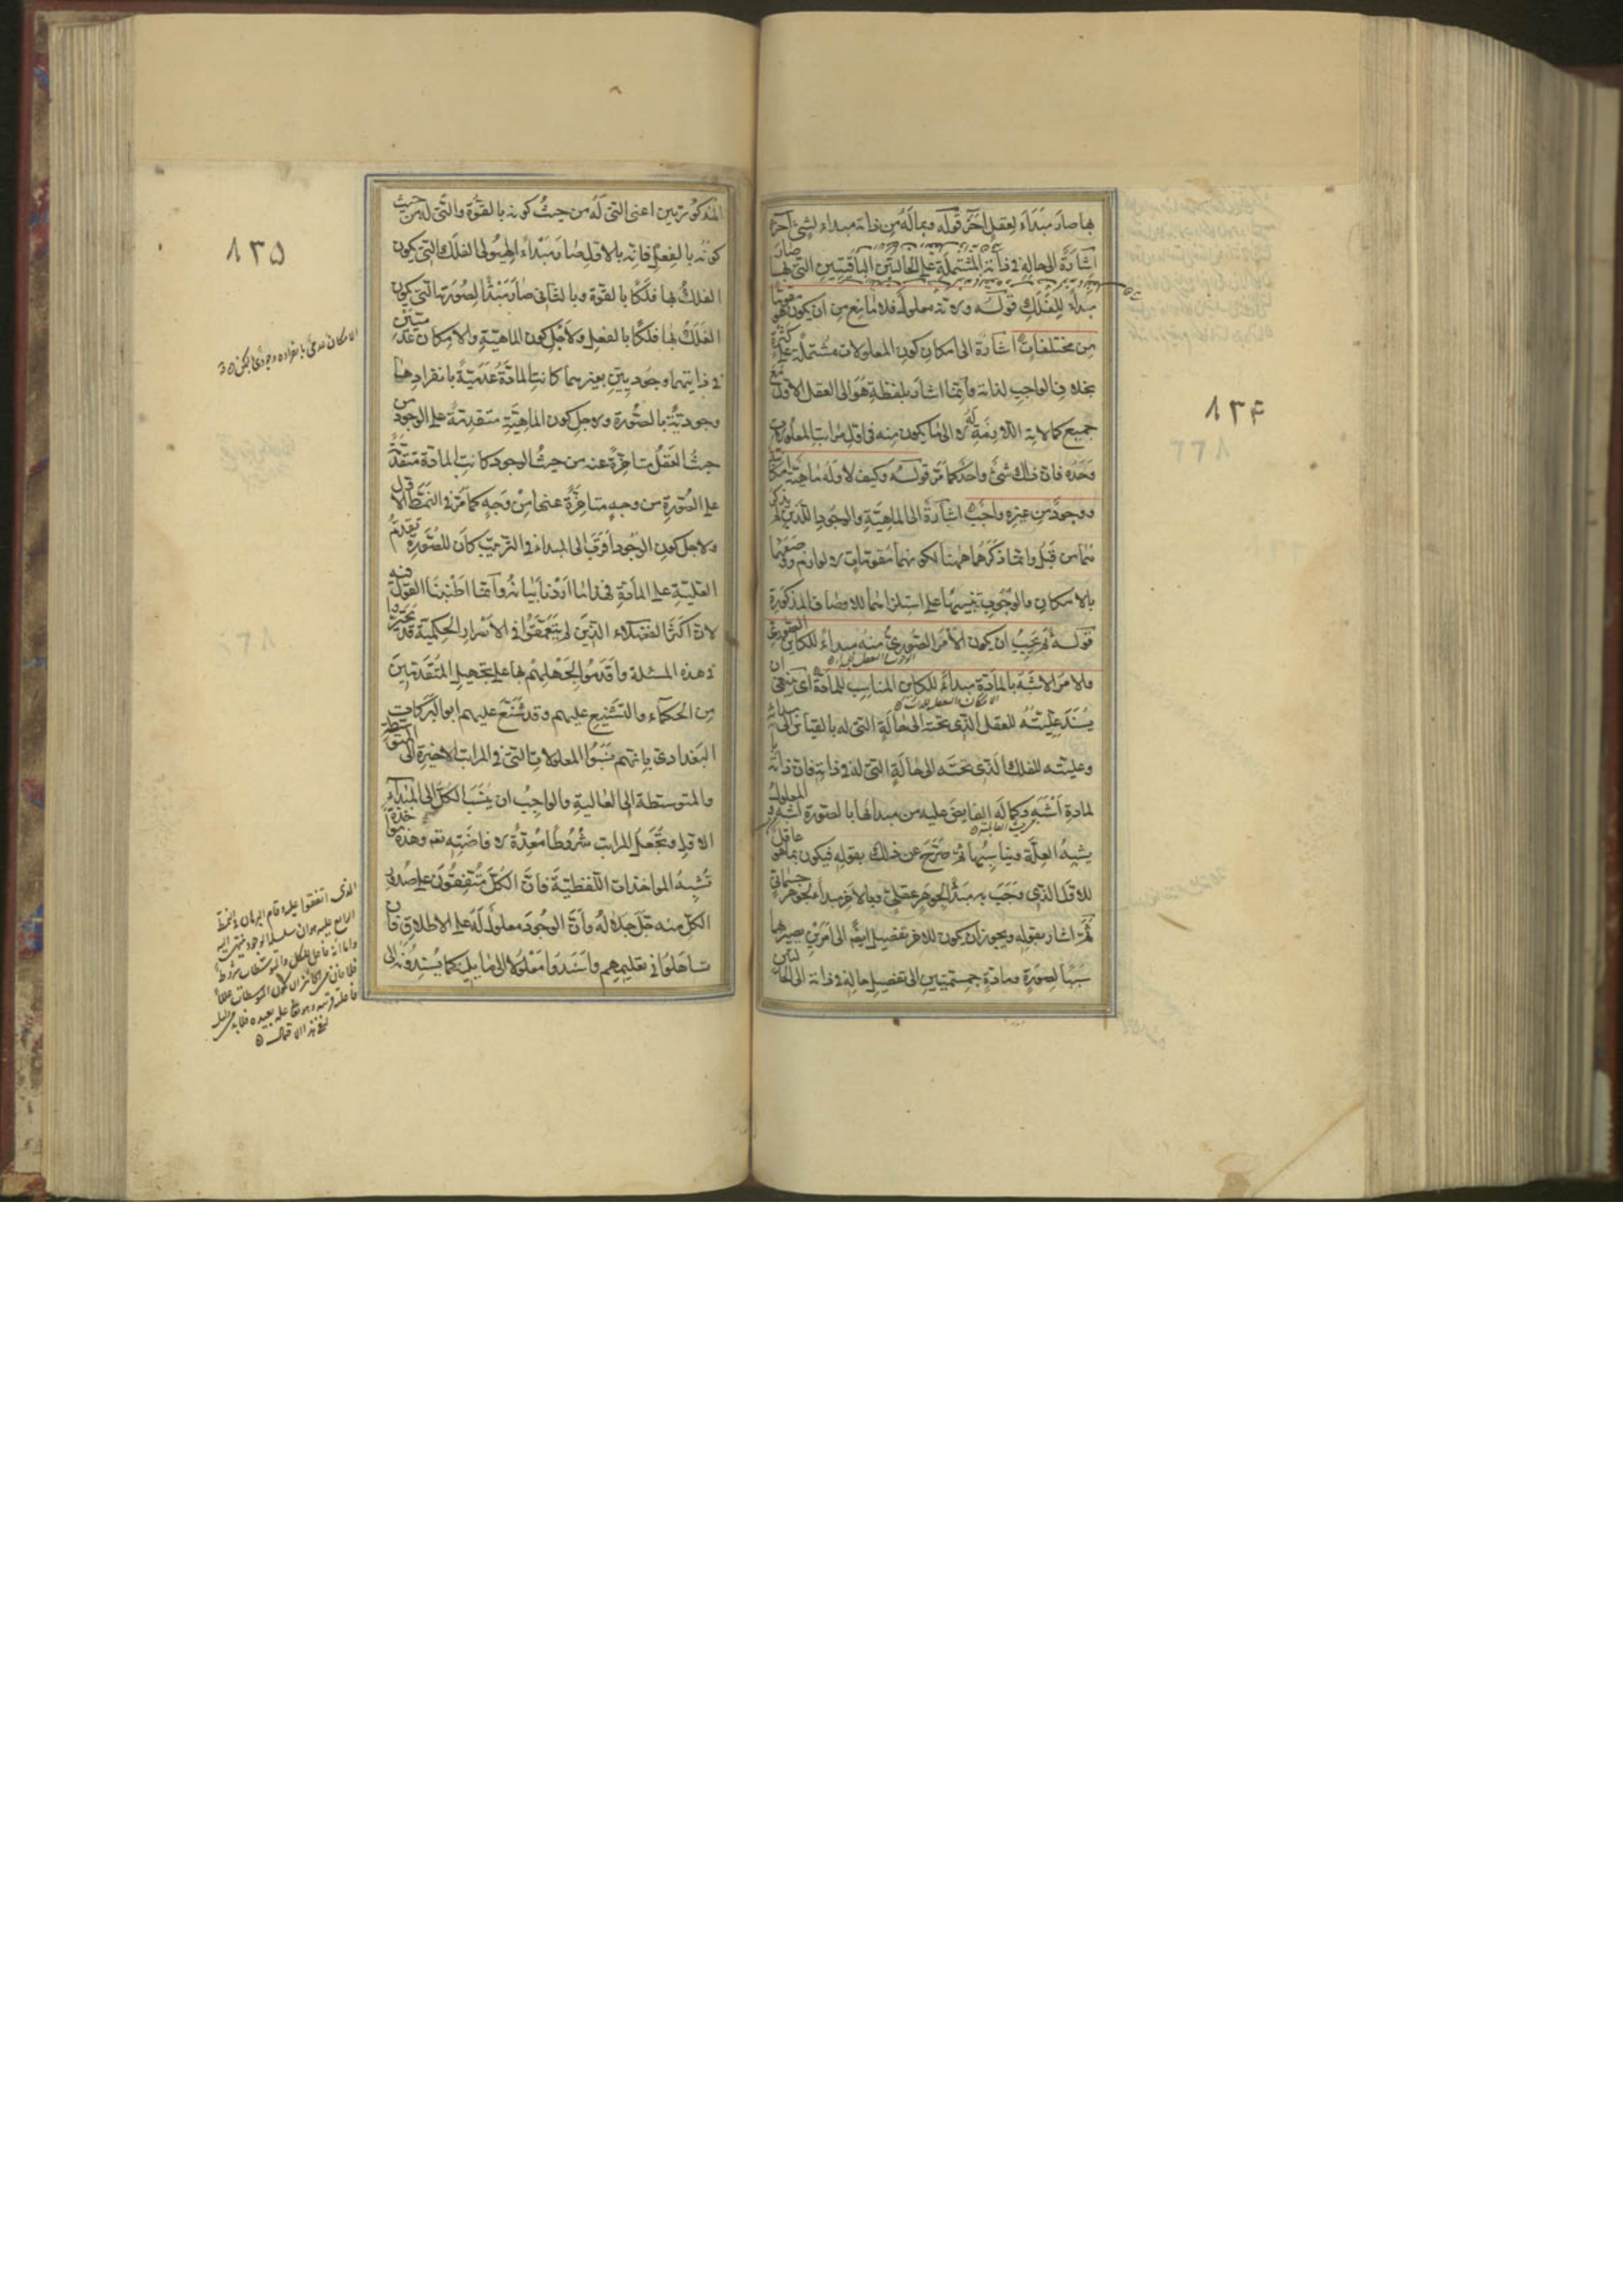 ٨٣۴
بها صار مبداء لعقل اخر قوله وبما له من ذاته مبداء لشئ اخر
اشارة الى حاله فى ذاته المشتملة على الحالتين الباقيتين التى بها صار
مبداء للفلك قوله ولانه معلول فلا مانع من ان يكون هو مقوما
من مختلفات اشارة الى امكان كون المعلولات مشتملة على كثرة
بخلاف الواجب لذاته وانما اشار بلفظة هو الى العقل الاول مع
جميع كمالاته اللازمة له لا الى ما يكون منه فى اول مراتب المعلولية
وحده فان ذلك شئ واحد كما مر قوله وكيف لا وله ماهية امكانية
ووجود من غيره واجب اشارة الى الماهية والوجود اللذين لم يذكر
هما من قبل وانما ذكرهما ههنا لكونهما مقومات لا لوازم ووصفهما
بالامكان والوجوب تنبيها على استلزامهما للاوصاف المذكورة
قوله ثم يجب ان يكون الامر الصورى منه مبداء للكاين الصورى
والامر الاشبه بالمادة مبداء للكاين المناسب للمادة اى ينبغى ان
يسند عليته للعقل الذى تحته الى حالة التى له بالقياس الى مبدائه
وعليته للفلك الذى تحته الى حالة التى له فى ذاته فان ذاته با
لمادة اشبه وكماله الفايض عليه من مبدائها بالصورة اشبه والمعلول
يشبه العلة ويناسبها ثم صرح عن ذلك بقوله فيكون بما هو عاقل
للاول الذى وجب به مبداء لجوهر عقلى وبالاخر مبداء لجوهر جسمانى
ثم اشار بقوله ويجوز ان يكون للاخر تفصيل ايضا الى امرين يصير بهما
سببا لصورة ومادة جسميتين الى تفصيل حاله فى ذاته الى الحالتين
٨٣۵
المذكورتين اعنى التى له من حيث كونه بالقوة والتى له من حيث
كونه بالفعل فانه بالاول صار مبداء لهيولى الفلك التى يكون
الفلك بها فلكا بالقوة وبالثانى صار مبداء لصورته التى يكون
الفلك بها فلكا بالفعل ولاجل كون الماهية والامكان عدميتين
فى ذاتيهما وجوديتين بغيرهما كانت المادة عدمية بانفرادها
وجودية بالصورة ولاجل كون الماهية متقدمة على الوجود من
حيث العقل متاخرة عنه من حيث الوجود كانت المادة متقدمة
على الصورة من وجه متاخرة عنها من وجه كما مر فى النمط الاول
ولاجل كون الوجود اقرب الى المبداء فى الترتيب كان للصورة تقدم
العلية على المادة فهذا ما اردنا بيانه وانما اطنبنا القول فيه
لان اكثر الفضلاء الذين لم يتعمقوا فى الاسرار الحكمية قد تحيروا
فى هذه المسئلة واقدموا لجهلهم بها على تجهيل المتقدمين
من الحكماء والتشنيع عليهم وقد شنع عليهم ابو البركات
البغدادى بانهم نسبوا المعلولات التى فى المراتب الاخيرة الى المتوسطة
والمتوسطة الى العالية والواجب ان ينسب الكل الى المبداء
الاول وتجعل المراتب شروطا معدة لافاضته تعم وهذه مواخذة
تشبه المواخذات اللفظية فان الكل متفقون على صدور
الكل منه جل جلاله وان الوجود معلول له على الاطلاق فان
تساهلوا فى تعليمهم واسندوا معلولا الى ما يليه كما يسندونه الى
الامكان عدمى بانفراده وجودى
الذى اتفقوا عليه وقام البرهان فى النمط